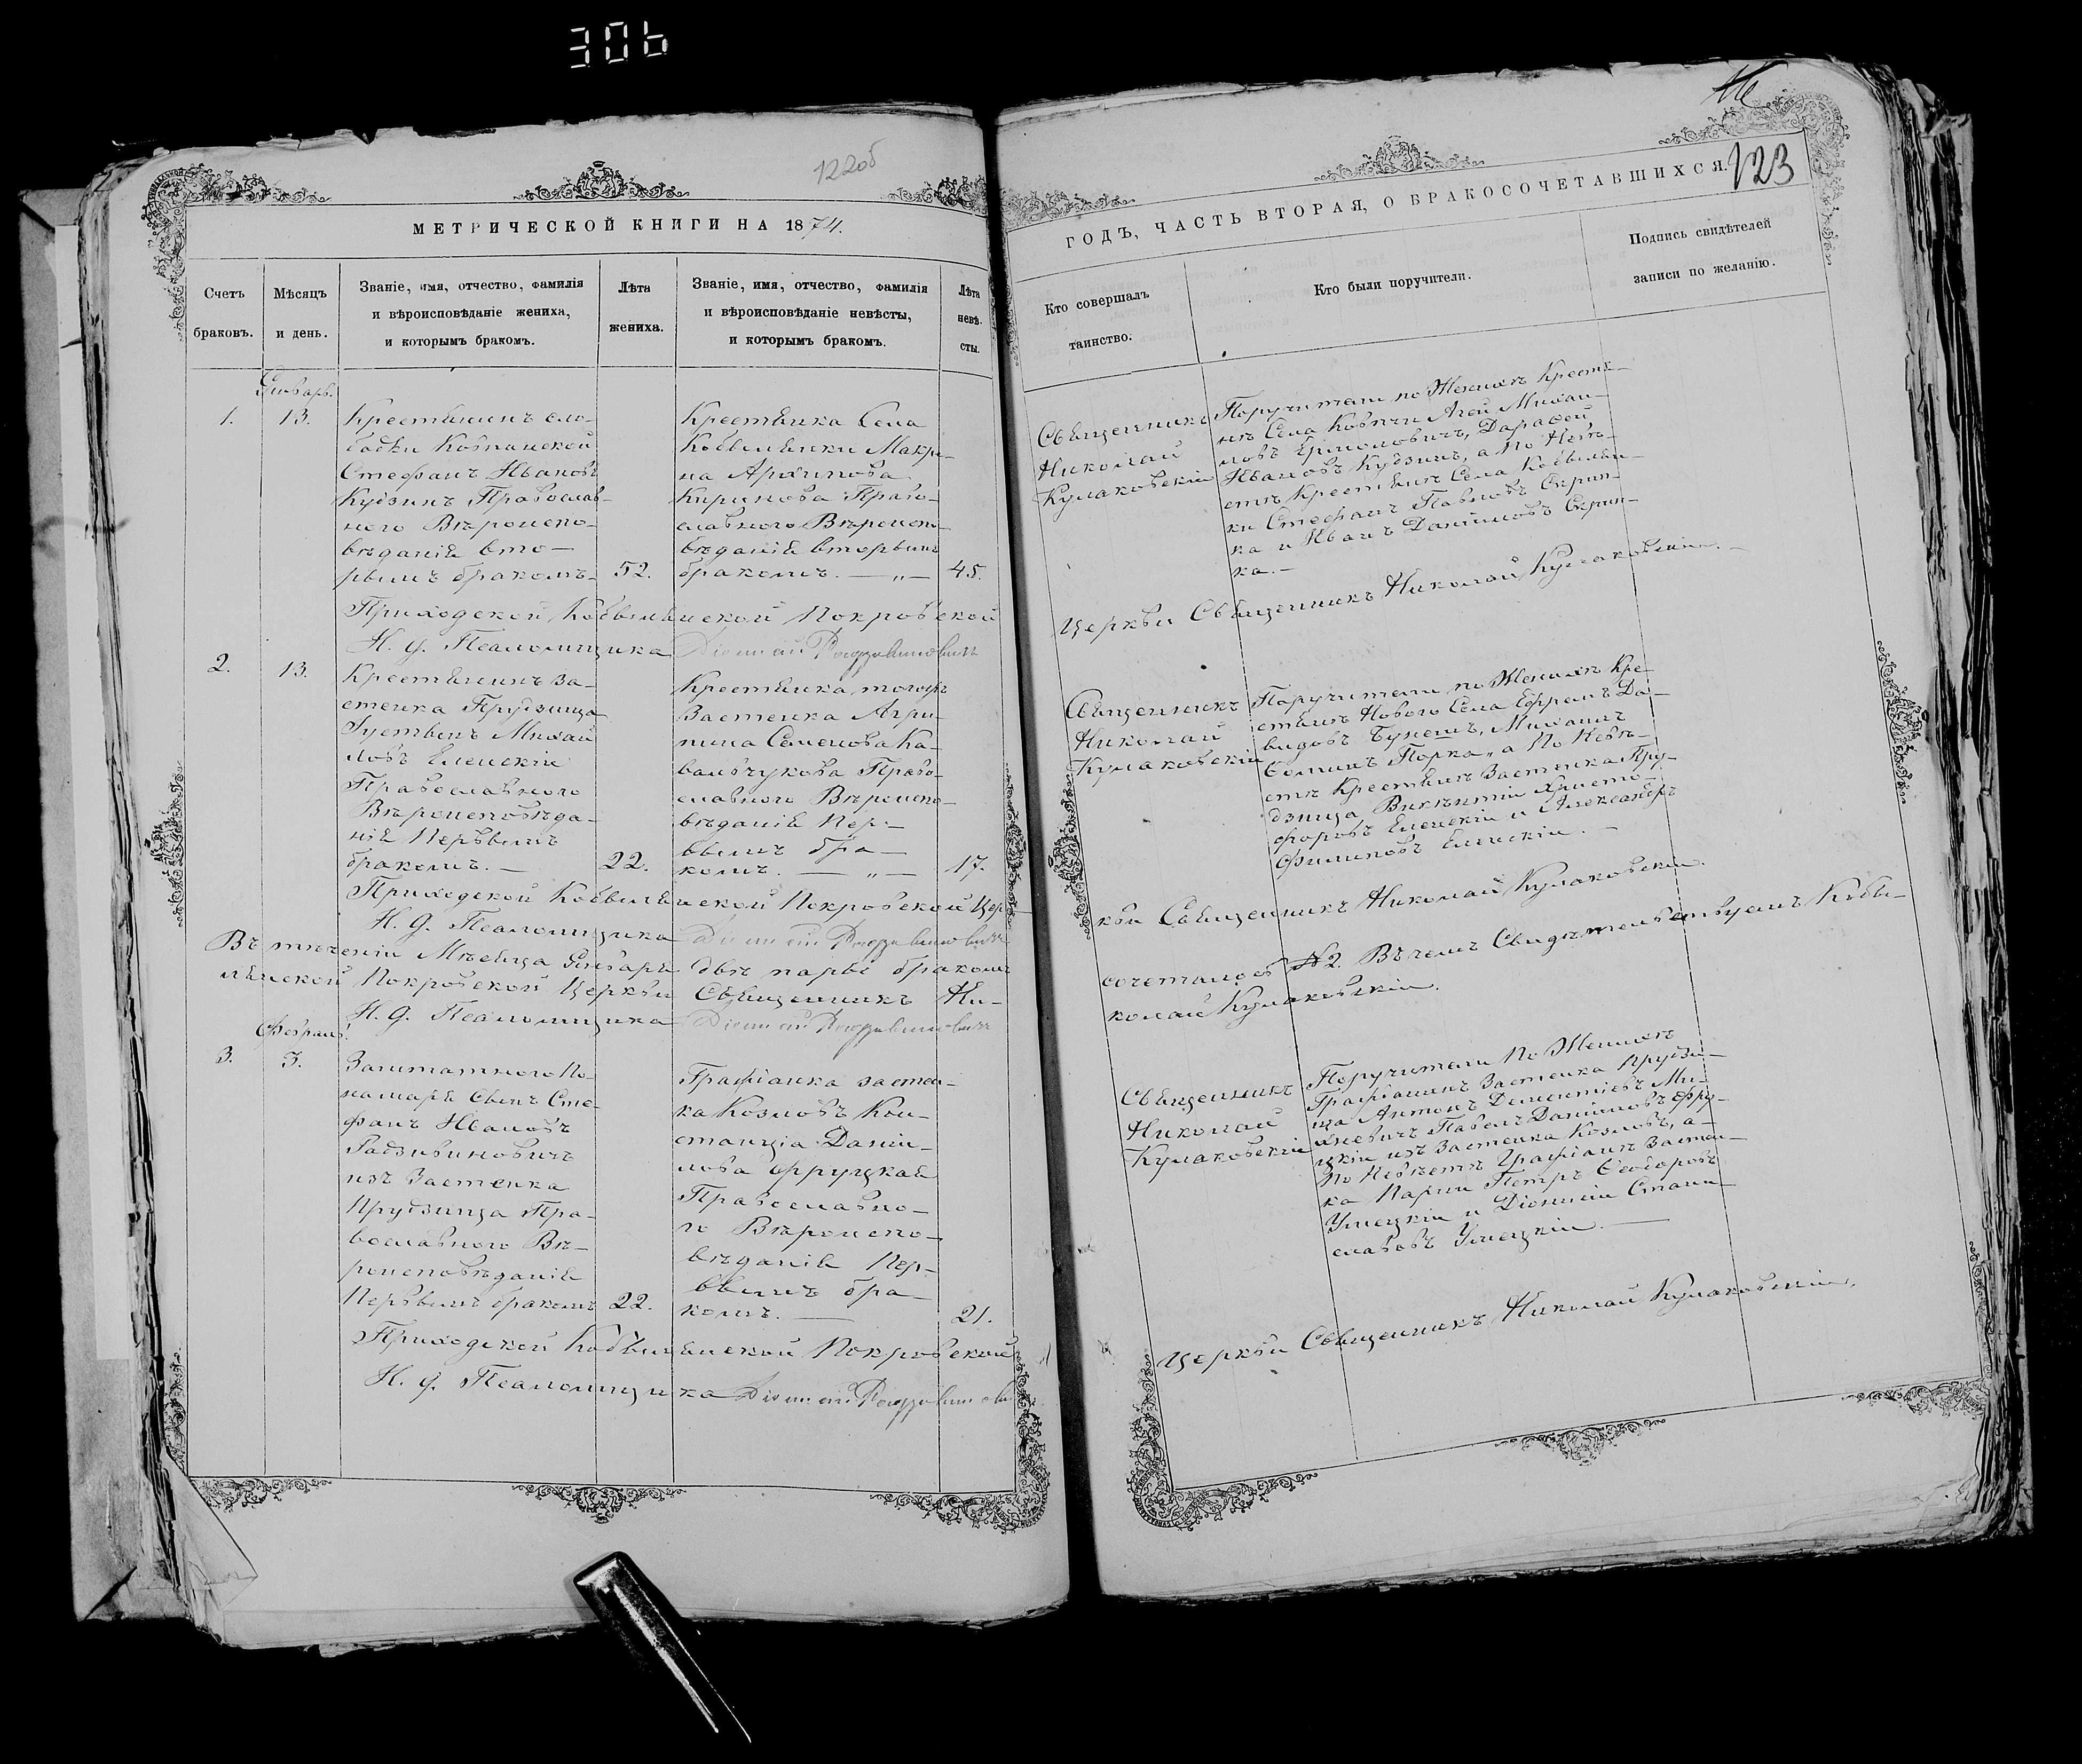 306
122об
МЕТРИЧЕСКОЙ КНИГИ НА 1874.
Счетъ
браковъ.
Мѣсяцъ
и день.
Званіе, имя, отчество, фамилія
и вѣроисповѣданіе жениха,
и которымъ бракомъ.
Лѣта
жениха.
Званіе, имя, отчество, фамилія
и вѣроисповѣданіе невѣсты,
и которымъ бракомъ.
Лѣта
невѣ-
сты.
Январь.
1.
13.
Крестьянинъ сло-
боды Ковпанской
Стефанъ Ивановъ
Кудзинъ Православ-
наго Вѣроиспо-
вѣданія вто-
рымъ бракомъ
52.
Крестьянка Села
Кобылянки Макри-
на Архипова
Кирикова Право-
славного Вѣроиспо-
вѣданія вторымъ
бракомъ. — „ —
45.
Приходской Кобылянской Покровской
И. д. Псаломщика
2.
13.
Крестьянинъ за-
стенка Прудзища
Іустынъ Михай
ловъ Еленскій
Православного
Вѣроисповѣда-
нія Первымъ
бракомъ. —
22.
Крестьянка тогожъ
Застенка Агри-
пина Семенова Ка-
вальчукова Право-
славного Вѣроиспо-
вѣданія Пер-
вымъ бра-
комъ. — „ —
17.
Приходской Кобылянской Покровской Цер-
И. д. Псаломщика
Въ теченіи Мѣсяца Января двѣ пары бракомъ
лянской Покровской Церкви Священникъ Ни-
И. д. Псаломщика
Февраль.
3.
3.
Заштатного По-
намаря Сынъ Сте-
фанъ Ивановъ
Радзивиновичъ
изъ Застенка
Прудзища Пра-
вославного Вѣ-
роисповѣданія
Первымъ бракомъ
22.
Гражданка застен-
ка Козловъ Кон-
станція Даніи-
лова Фруцкая
Православно-
го Вѣроиспо-
вѣданія Пер-
вымъ бра-
комъ. —
21.
Приходской Кобылянской Покровской
И. д. Псаломщика
123
ГОДЪ, ЧАСТЬ ВТОРАЯ, О БРАКОСОЧЕТАВШИХСЯ.
Кто совершалъ
таинство.
Кто были поручители.
Подпись свидѣтелей
записи по желанію.
Священникъ
Николай
Кулаковскій
Поручители по Женихѣ Крестья-
нѣ Села Ковпичи Агей Михаи-
ловъ Ермоловичъ, Дарафей
Ивановъ Кудзинъ, а по Невѣ-
стѣ Крестьянѣ Села Кобылян-
ки Стефанъ Павловъ Скрип-
ка и Иванъ Даніиловъ Скрип-
ка. —
Церкви Священникъ Николай Кулаковскій. —
Священникъ
Николай
Кулаковскій
Поручители по Женихѣ Кре-
стьянѣ Нового Села Ефремъ Да-
видовъ Бунемъ, Михаилъ
Ѳоминъ Порка, а по Невѣ-
стѣ Крестьянѣ Застенка Пру-
дзища Викентій Христо-
форовъ Еленскій и Александръ
Филиповъ Еленскій. —
кви Священникъ Николай Кулаковскій.
сочеталось № 2. Въ чемъ Свидѣтельствуемъ Кобы-
колай Кулаковскій.
Священникъ
Николай
Кулаковскій
Поручители по Женихѣ
Гражданинъ Застенка Прудзи-
ща Антонъ Дементіевъ Ми-
хневичъ Павелъ Даніиловъ Фру-
цкій изъ Застенка Козловъ, а
по Невѣстѣ Гражданѣ Застен-
ка Марии Петръ Ѳеодоровъ
Ульецкій и Діонисій Стани-
славовъ Ульецкій. —
Церкви Священникъ Николай Кулаковскій.